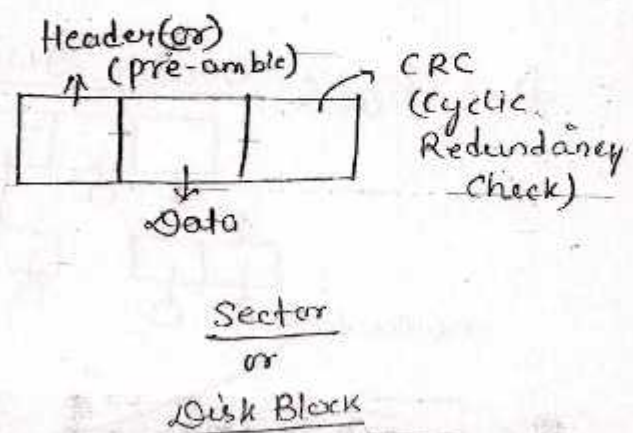 Header(or)
(pre-amble)
CRC
(Cyclic
Redundancy
Check)
Data
Sector
or
Disk Block